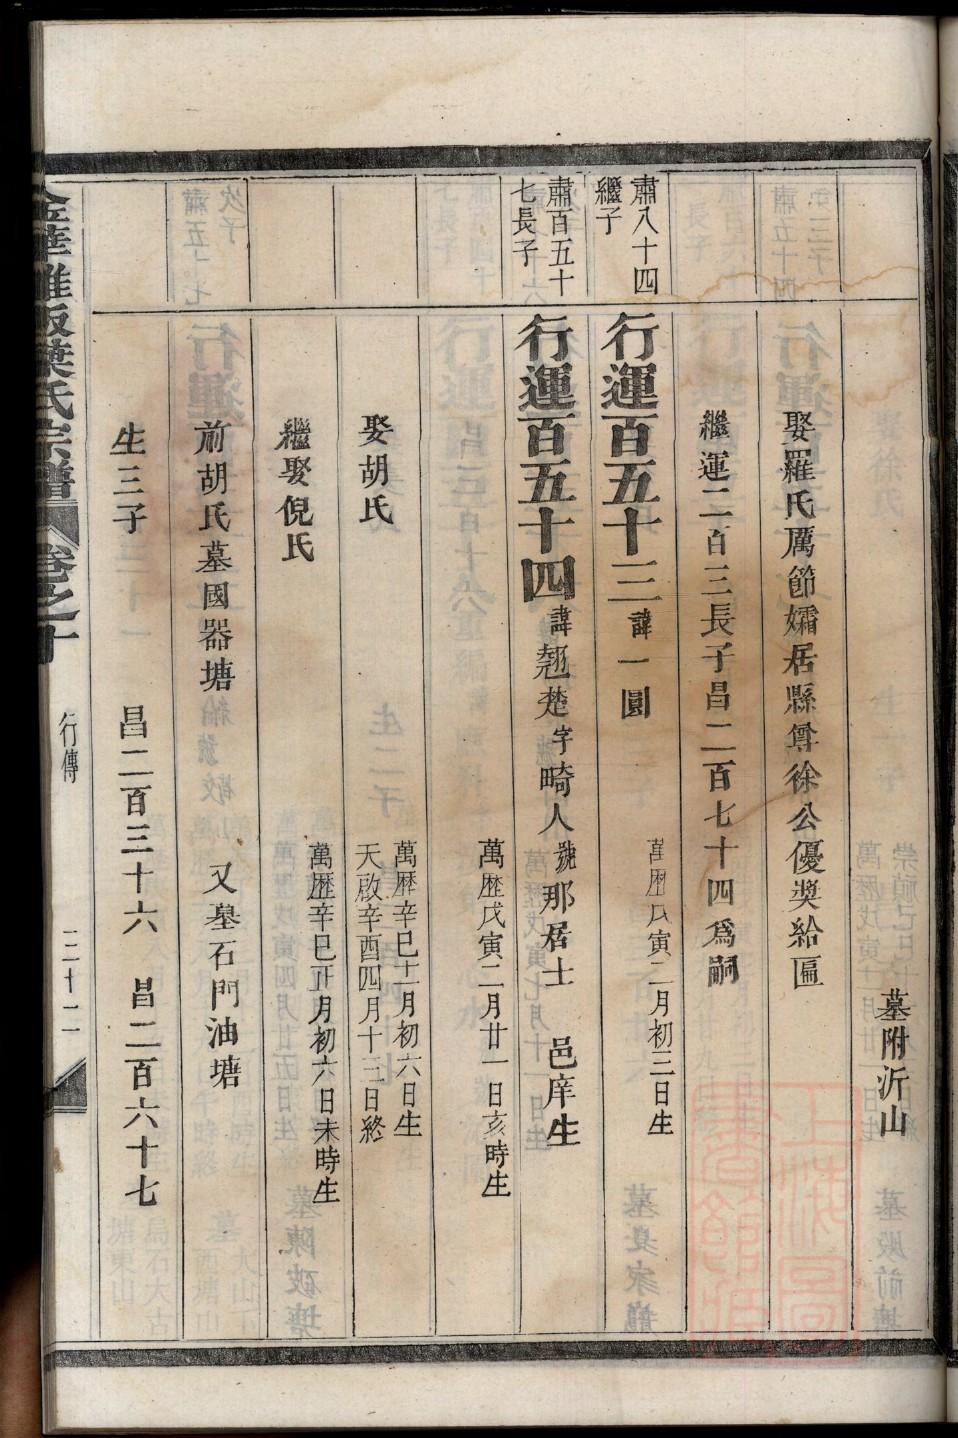 墓附沂山
娶羅氏厲節孀居縣尊徐公優奬給匾
繼運二百三長子昌二百七十四爲嗣
肅八十四
繼子
行運百五十三 諱一圓
萬歷戊寅二月初三日生
肅百五十
七長子
行運百五十四 諱翹楚字畸人號那居士 邑庠生
萬歷戊寅二月廿一日亥時生
娶胡氏
萬歷辛巳十一月初六日生
天啟辛酉四月十三日終
繼娶倪氏
萬歷辛巳正月初六日未時生
前胡氏墓國器塘 又墓石門油塘
生三子 昌二百三十六 昌二百六十七
葉氏宗譜 卷之十 行傳 三十二